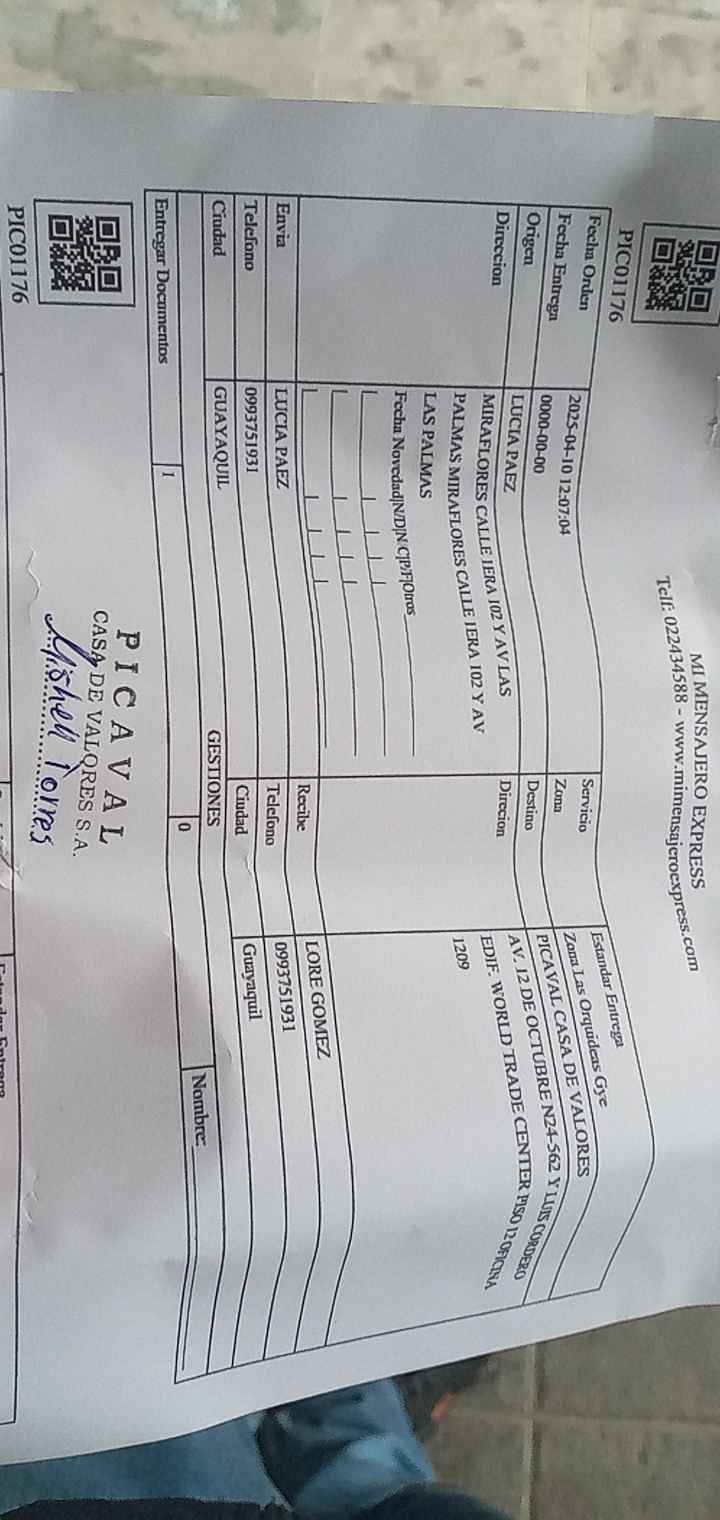 MI MENSAJERO EXPRESS
Telf: 022434588 - www.mimensajeroexpress.com
PIC01176
Fecha Orden 2025-04-10 12:07:04 Servicio Estandar Entrega
Fecha Entrega 0000-00-00 Zona Zona Las Orquideas Gye
Origen LUCIA PAEZ Destino PICAVAL CASA DE VALORES
Direccion MIRAFLORES CALLE 1ERA 102 Y AV LAS Direcion AV. 12 DE OCTUBRE N24-562 Y LUIS CORDERO
PALMAS MIRAFLORES CALLE 1ERA 102 Y AV EDIF. WORLD TRADE CENTER PISO 12 OFICINA
LAS PALMAS 1209
Fecha Novedad|N/D|N/C|P/F|Otros
Envia LUCIA PAEZ Recibe LORE GOMEZ
Telefono 0993751931 Telefono 0993751931
Ciudad GUAYAQUIL Ciudad Guayaquil
GESTIONES
Entregar Documentos 1 0 Nombre:
PICAVAL
CASA DE VALORES S.A.
Mishell Torres
PIC01176